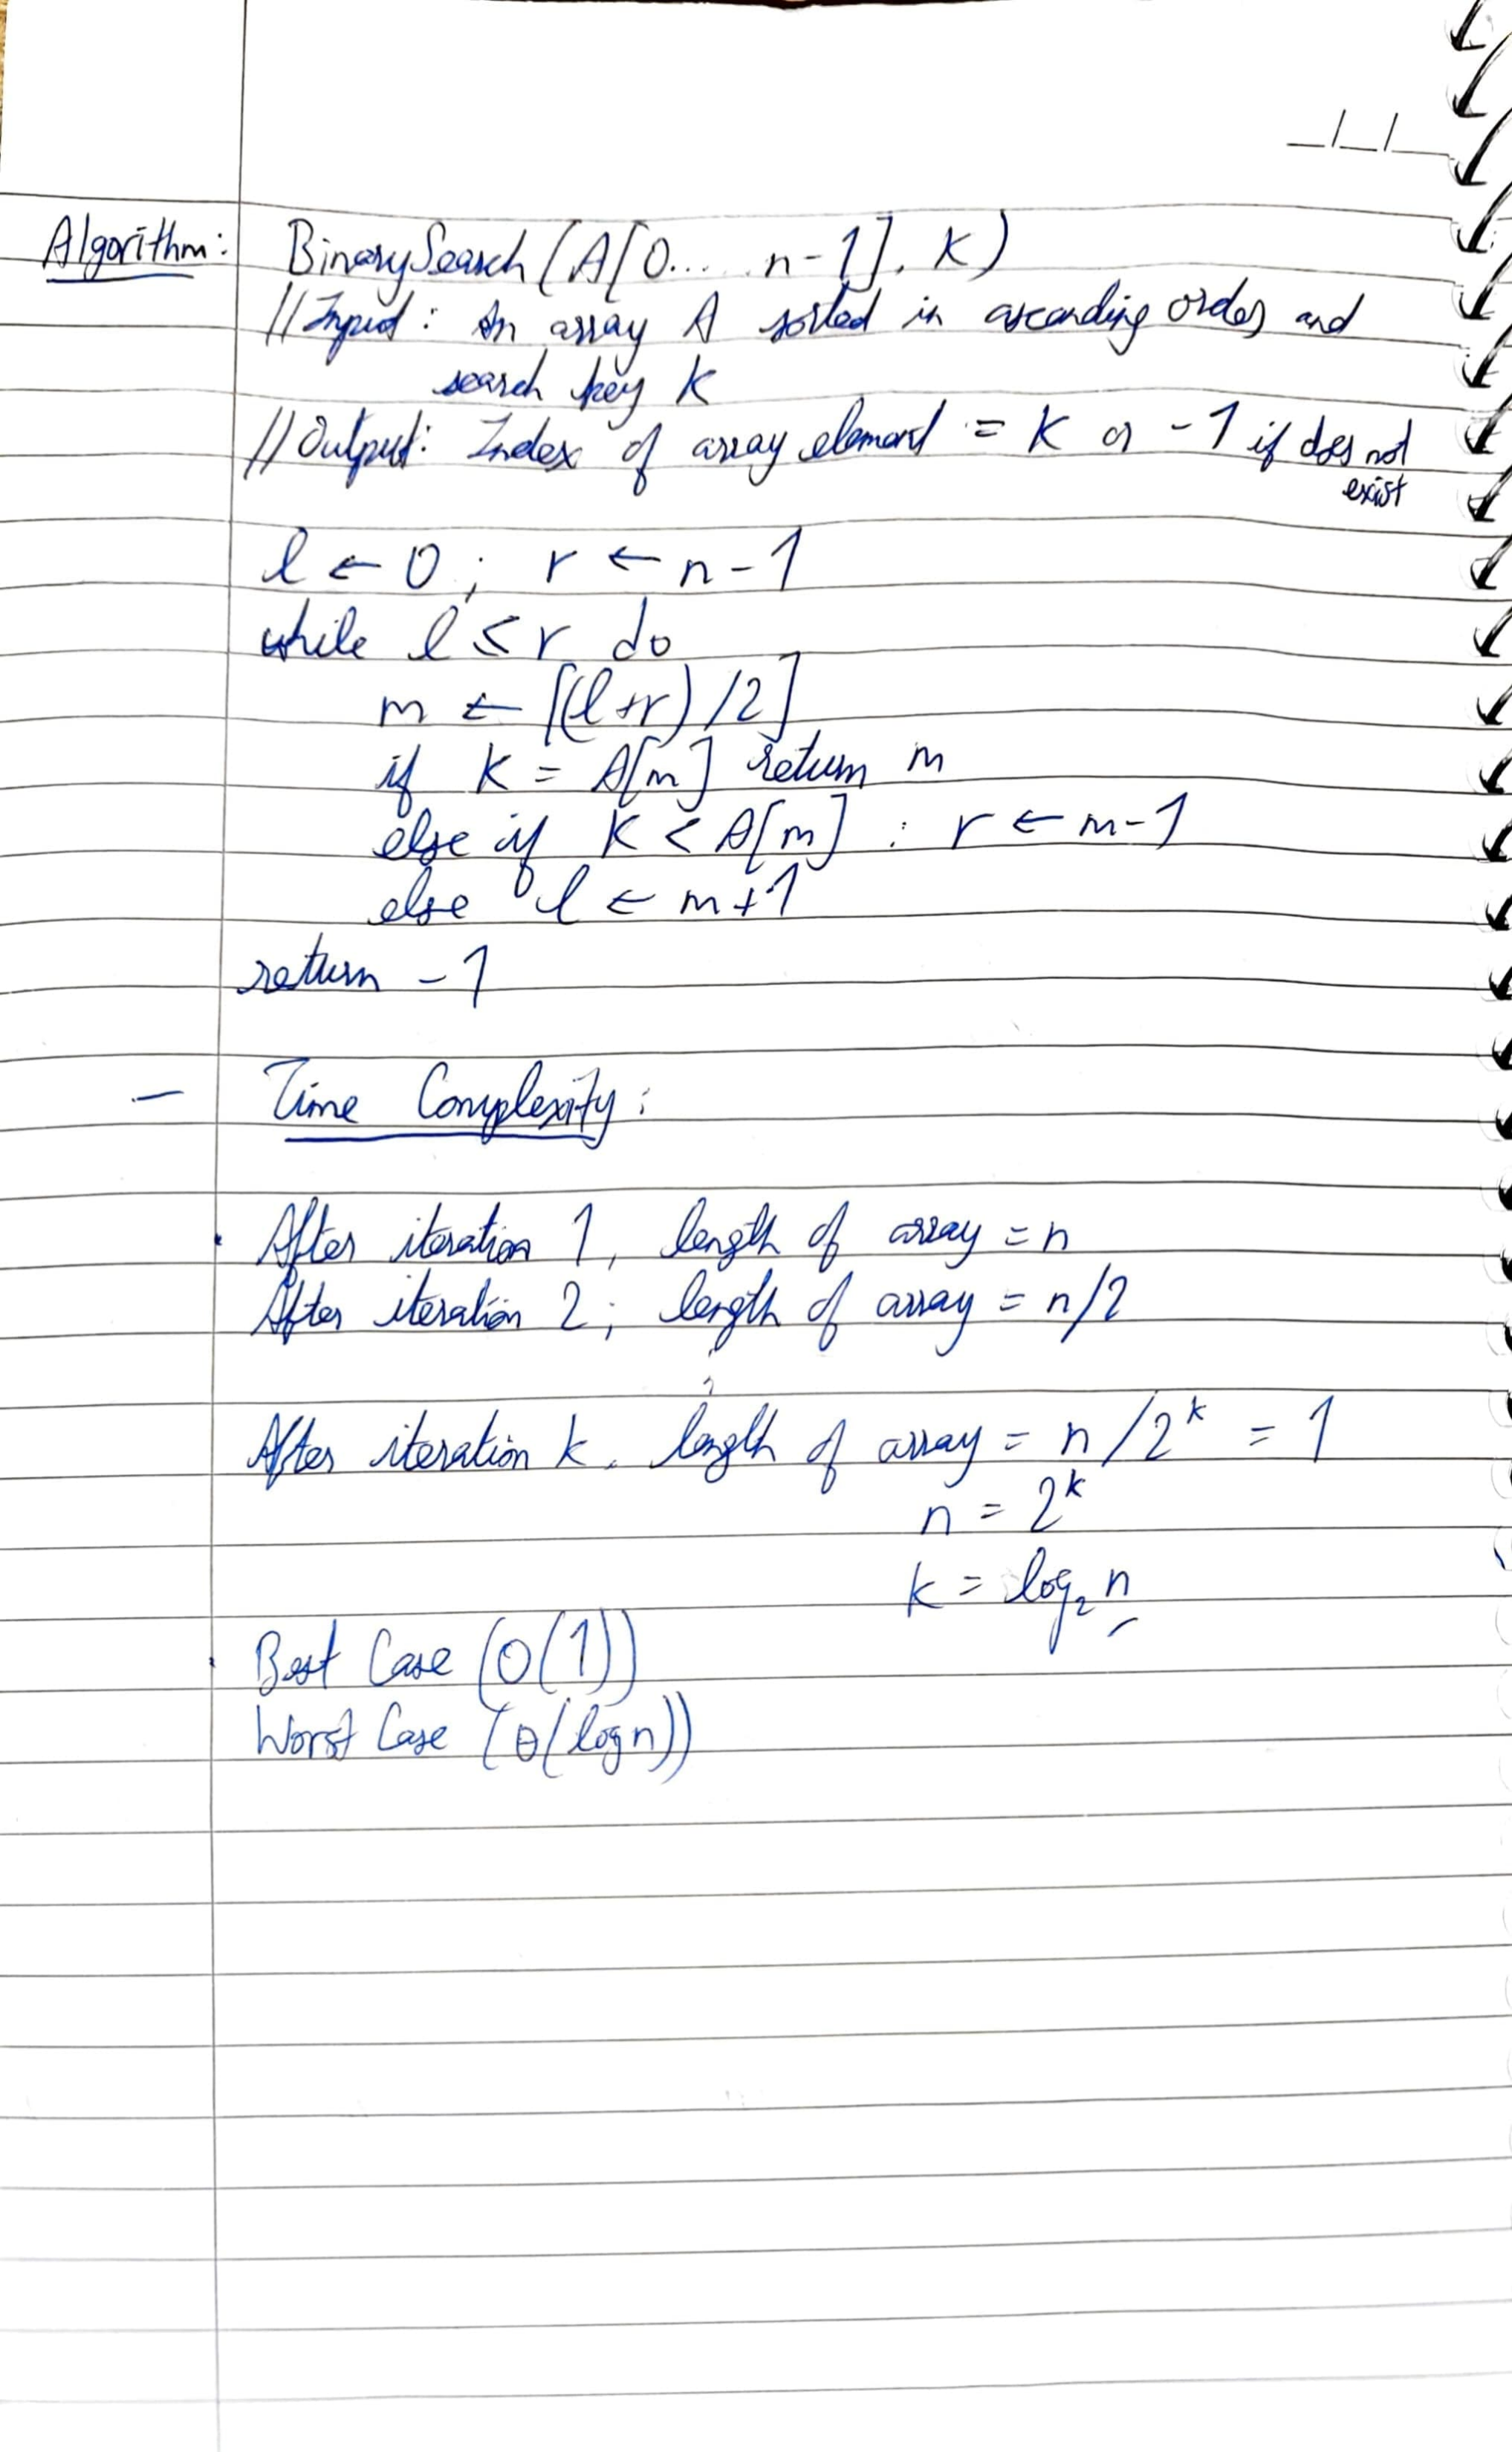 __/__/__
Algorithm: BinarySearch(A[0... n-1], K)
//Input: An array A sorted in ascending order and
search key K
//Output: Index of array element = K or -1 if does not
exist
l ← 0; r ← n-1
while l ≤ r do
m ← [(l+r)/2]
if K = A[m] return m
else if K < A[m] : r ← m-1
else l ← m+1
return -1
- Time Complexity:
. After iteration 1, length of array = n
After iteration 2; length of array = n/2
:
After iteration k, length of array = n/2^k = 1
n = 2^k
k = log₂ n
. Best Case (O(1))
Worst Case (θ(log n))